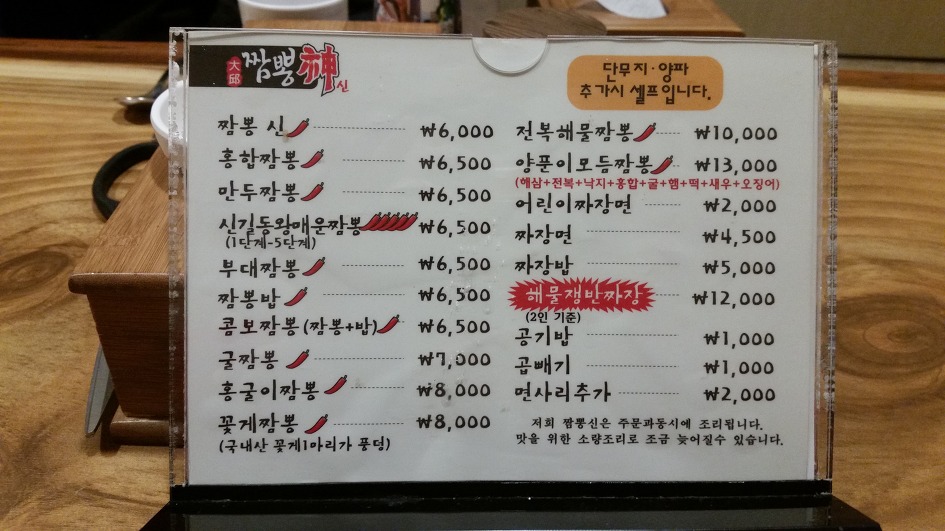 大邱 짬뽕神신
단무지·양파
추가시 셀프입니다.
짬뽕 신 ₩6,000
홍합짬뽕 ₩6,500
만두짬뽕 ₩6,500
신길동왕매운짬뽕 ₩6,500
(1단계-5단계)
부대짬뽕 ₩6,500
짬뽕밥 ₩6,500
콤보짬뽕(짬뽕+밥) ₩6,500
굴짬뽕 ₩7,000
홍굴이짬뽕 ₩8,000
꽃게짬뽕 ₩8,000
(국내산 꽃게1마리가 퐁덩)
전복해물짬뽕 ₩10,000
양푼이모듬짬뽕 ₩13,000
(해삼+전복+낙지+홍합+굴+햄+떡+새우+오징어)
어린이짜장면 ₩2,000
짜장면 ₩4,500
짜장밥 ₩5,000
해물쟁반짜장 ₩12,000
(2인 기준)
공기밥 ₩1,000
곱빼기 ₩1,000
면사리추가 ₩2,000
저희 짬뽕신은 주문과동시에 조리됩니다.
맛을 위한 소량조리로 조금 늦어질수 있습니다.